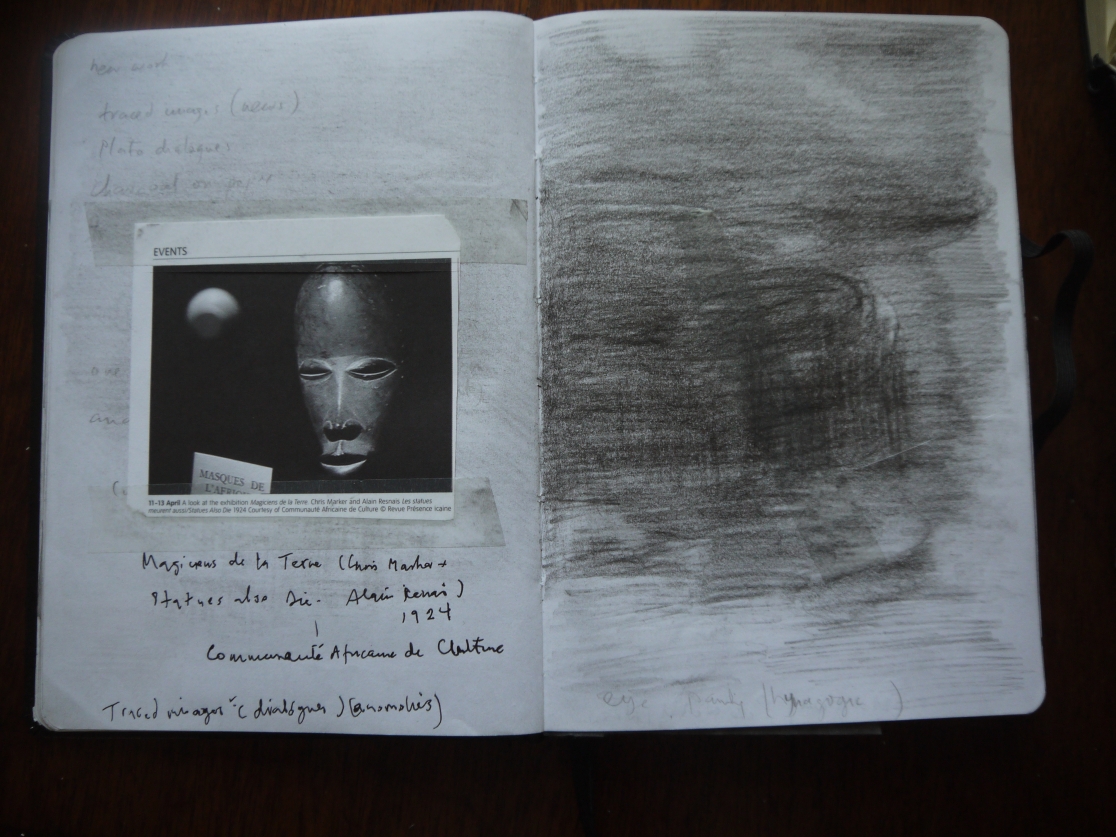 new work
traced images (news)
Plato dialogues
Charcoal on paper
EVENTS
MASQUES DE
L'AFRIQUE
11-13 April A look at the exhibition Magiciens de la Terre. Chris Marker and Alain Resnais Les statues
meurent aussi/Statues Also Die 1924 Courtesy of Communauté Africaine de Culture © Revue Présence icaine
one
Magiciens de la Terre (Chris Marker +
Statues also Die. Alain Renais)
1924
Communauté Africaine de Clulture
Traced images "(dialogues) (anomolies)
eye